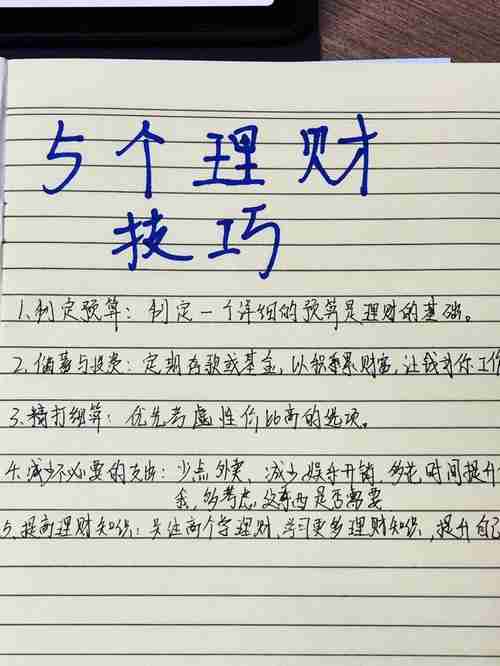 5个理财
技巧
1、制定预算：制定一个详细的预算是理财的基础。
2、储蓄与投资：定期存款或基金，以积累财富，让钱为你工作
3、精打细算：优先考虑性价比高的选项。
4、减少不必要的支出：少点外卖、减少娱乐开销，多花时间提升
我，多考虑，这东西是否需要
5、提高理财知识：关注两个学理财，学习更多理财知识，提升自己